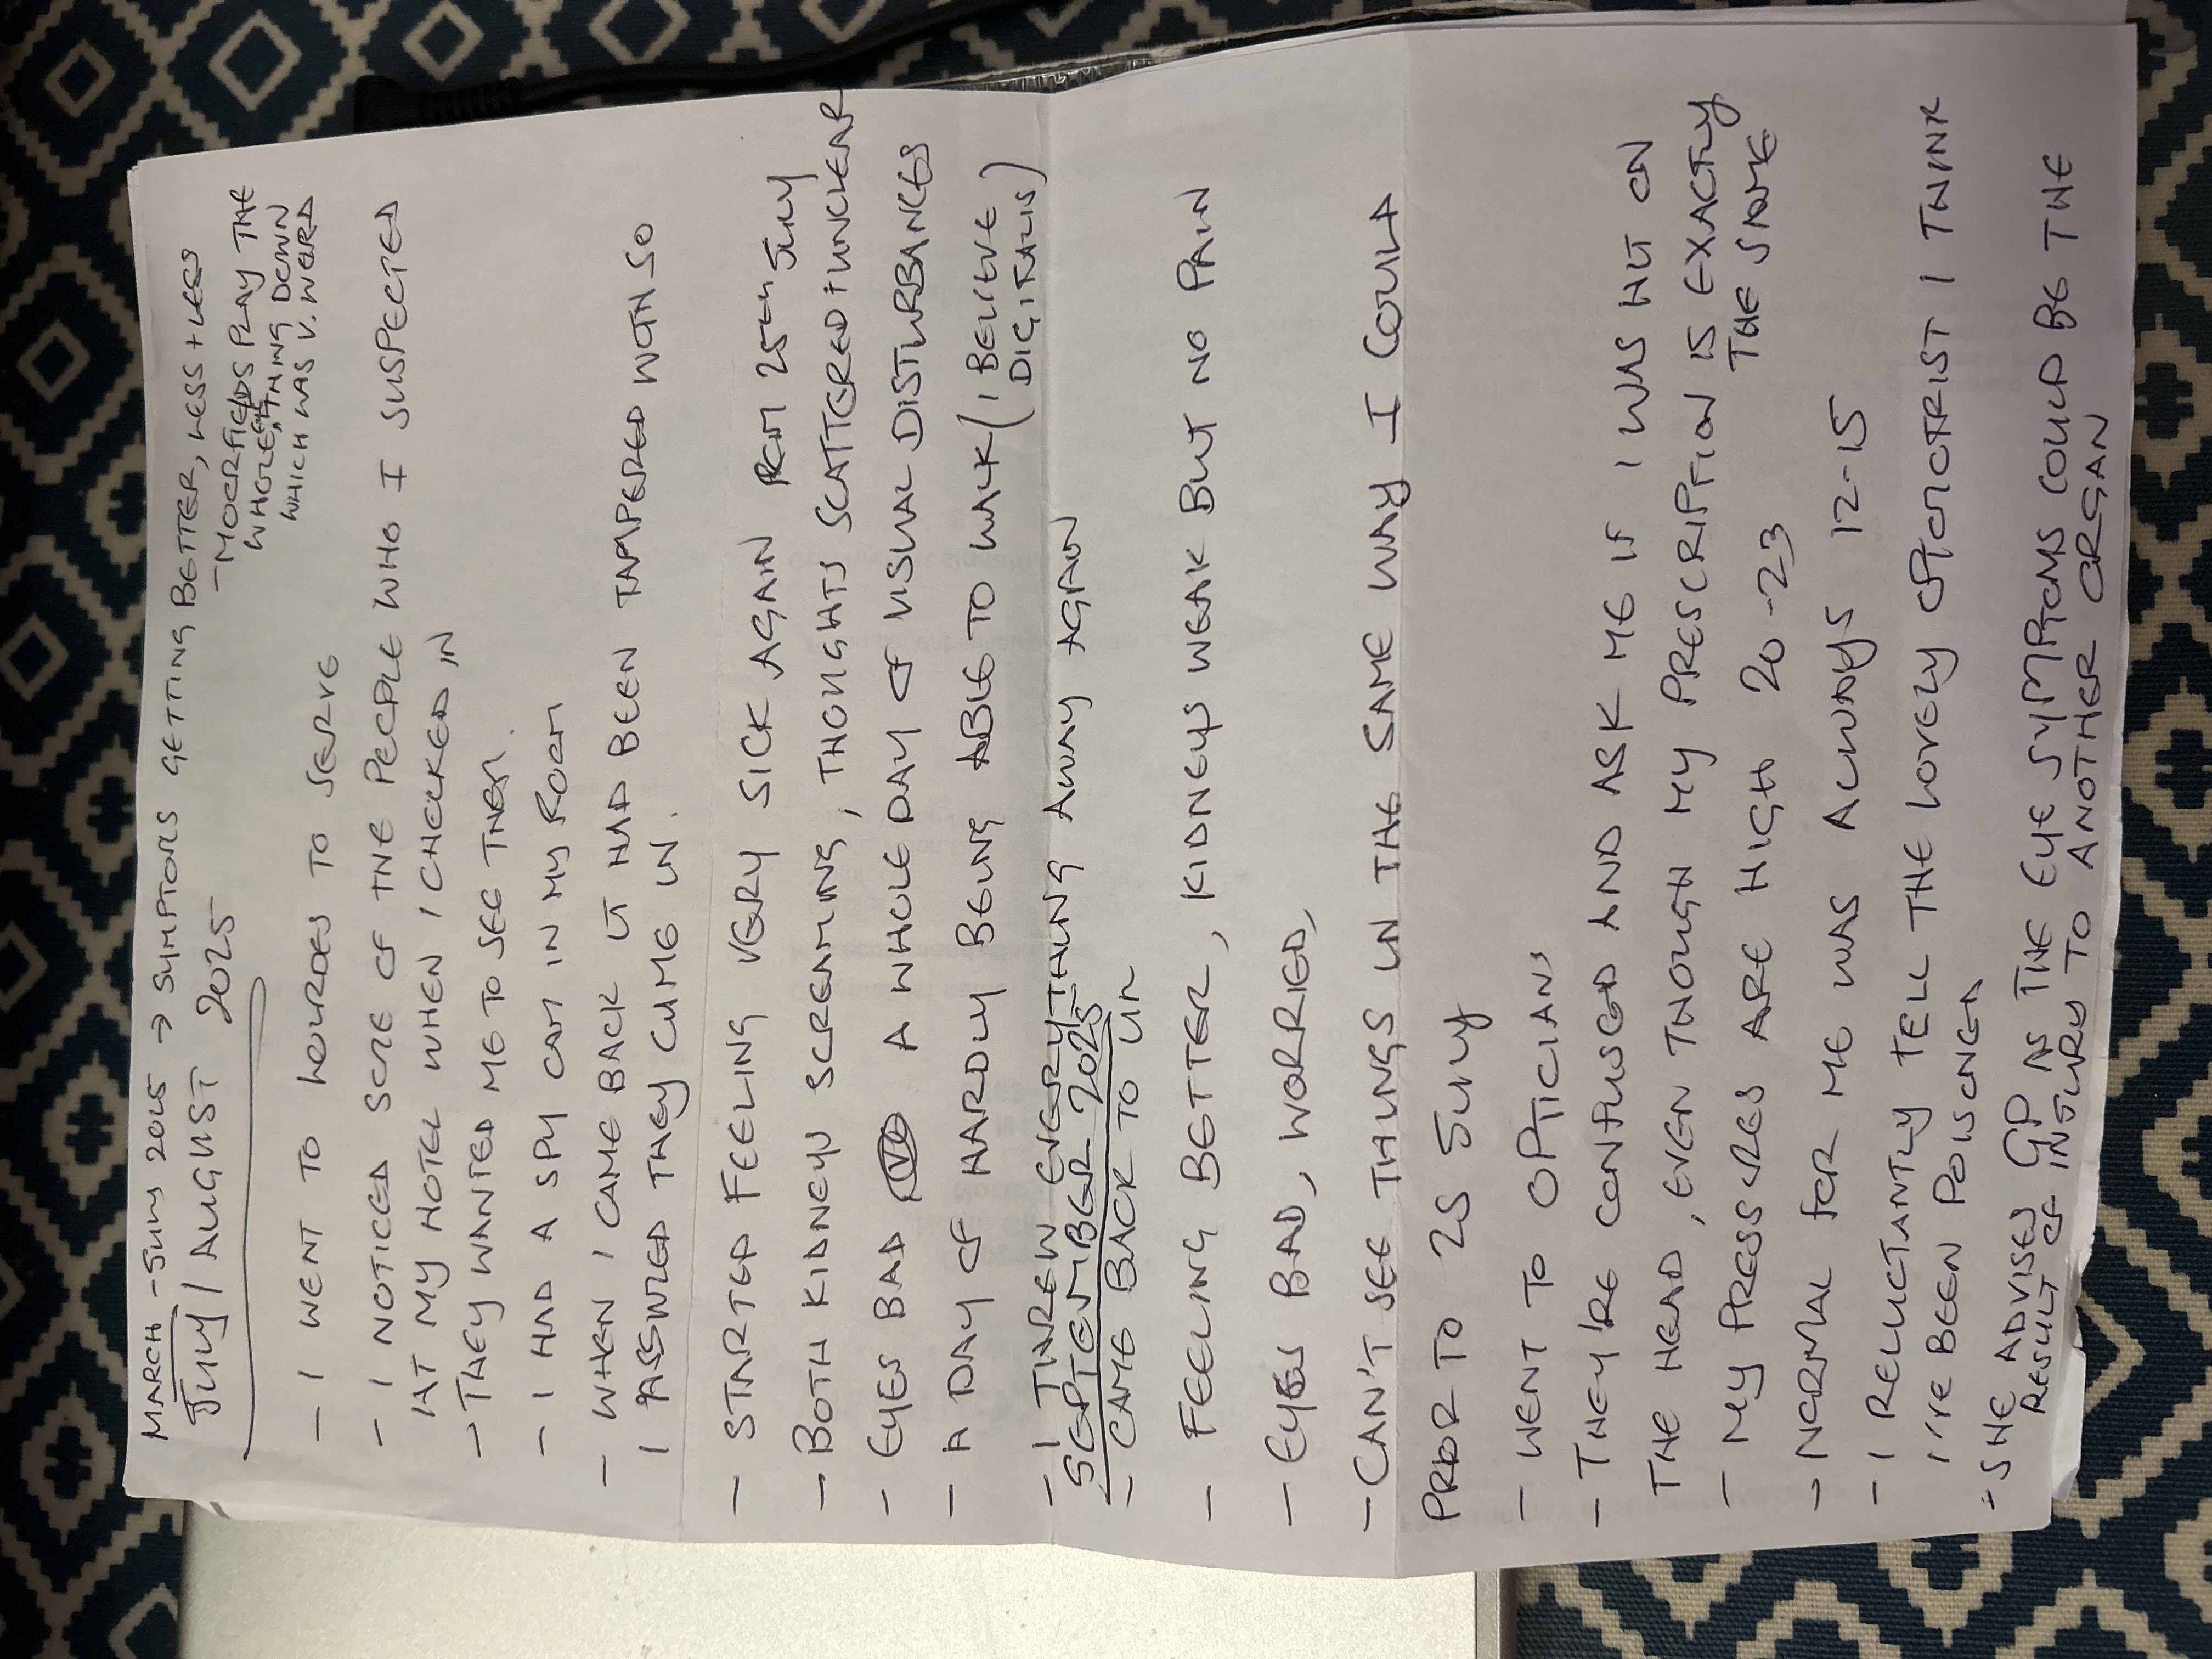 MARCH - JULY 2025 → SYMPTOMS GETTING BETTER, LESS + LESS
- MOORFIELDS PLAY THE
WHOLE EYE THING DOWN
WHICH WAS V. WERD
JULY / AUGUST 2025
- I WENT TO LOURDES TO SERVE
- I NOTICED SOME OF THE PEOPLE WHO I SUSPECTED
AT MY HOTEL WHEN I CHECKED IN
- THEY WANTED ME TO SEE THEM.
- I HAD A SPY CAM IN MY ROOM
- WHEN I CAME BACK IT HAD BEEN TAMPERED WITH SO
I ASSUMED THEY CAME IN.
- STARTED FEELING VERY SICK AGAIN FROM 25TH JULY
- BOTH KIDNEYS SCREAMING, THOUGHTS SCATTERED + UNCLEAR
- EYES BAD A WHOLE DAY OF VISUAL DISTURBANCES
- A DAY OF HARDLY BEING ABLE TO WALK (I BELIEVE
DIGITALIS)
- I THREW EVERYTHING AWAY AGAIN
SEPTEMBER 2025
- CAME BACK TO UK
- FEELING BETTER, KIDNEYS WEAK BUT NO PAIN
- EYES BAD, WORRIED,
- CAN'T SEE THINGS IN THE SAME WAY I COULD
PRIOR TO 25 JULY
- WENT TO OPTICIANS
- THEY'RE CONFUSED AND ASK ME IF I WAS HIT ON
THE HEAD, EVEN THOUGH MY PRESCRIPTION IS EXACTLY
THE SAME
- MY PRESSURES ARE HIGH 20-23
- NORMAL FOR ME WAS ALWAYS 12-15
- I RELUCTANTLY TELL THE LOVELY OPTOMOTRIST I THINK
I'VE BEEN POISONED
- SHE ADVISES GP AS THE EYE SYMPTOMS COULD BE THE
RESULT OF INJURY TO ANOTHER ORGAN